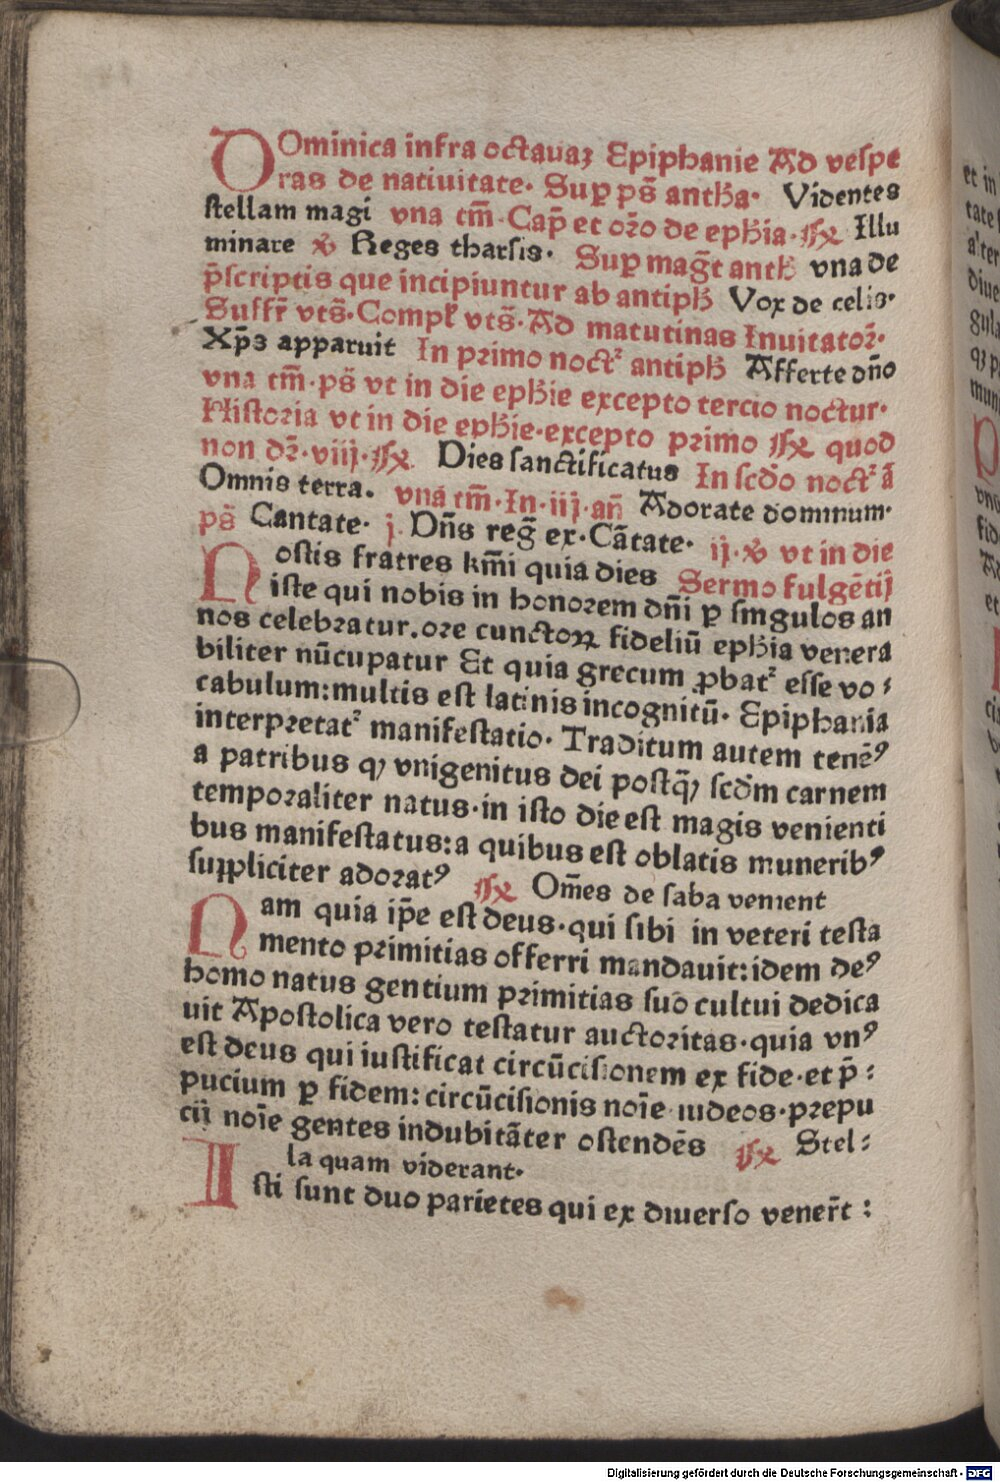 DOminica infra octauaꝫ Epiphanie Ad veſpe
ras de natiuitate· Suꝑ pẜ antħa· Videntes
ſtellam magi vna tm̄·Cap̄ et oꝛo de epħia·℟ Illu
minare ℣ Reges tharſis· Suꝑ mag̅t antħ vna de
p̄ſcriptis que incipiuntur ab antipħ Vox de celis·
Suffr̄ vtẜ·Compł vtẜ·Ad matutinas Inuitatoꝛ̄·
Xp̄ꝫ apparuit In pꝛimo noct᷑ antipħ Afferte dn̄o
vna tm̄·pẜ vt in die epħie excepto tercio noctur·
Hiſtoria vt in die epħie·excepto pꝛimo ℟ quod
non dꝛ̄·viij·℟ Dies ſanctificatus In ſcd̄o noct᷑ ā
Omnis terra· vna tm̄·In·iij·an̄ Adorate dominum·
pẜ Cantate· j· Dn̄s reg̅ ex·Cātate· ij·℣ vt in die
Noſtis fratres km̄i quia dies Sermo fulgētij
iſte qui nobis in honoꝛem dn̄i ꝑ ſingulos an
nos celebꝛatur.oꝛe cunctoꝝ fideliū epħia venera
biliter nūcupatur Et quia grecum ꝓbat᷑ eſſe vo⸗
cabulum:multis eſt latinis incognitū· Epiphania
interpꝛetat᷑ manifeſtatio· Traditum autem tenēꝰ
a patribus qꝫ vnigenitus dei poſtqꝫ̄ ſcd̄m carnem
tempoꝛaliter natus·in iſto die eſt magis venienti
bus manifeſtatus:a quibus eſt oblatis muneribꝰ
ſuppliciter adoꝛatꝰ ℟ Om̄es de ſaba venient
Nam quia ip̄e eſt deus·qui ſibi in veteri teſta
mento pꝛimitias offerri mandauit:idem deꝰ
homo natus gentium pꝛimitias ſuo cultui dedica
uit Apoſtolica vero teſtatur auctoꝛitas·quia vnꝰ
eſt deus qui iuſtificat circūciſionem ex fide·et p̄⸗
pucium ꝑ fidem:circūciſionis noīe iudeos·pꝛepu
cij noīe gentes indubitāter oſtendēs ℟ Stel⸗
la quam viderant·
Iſti ſunt duo parietes qui ex diuerſo vener̄t :
et in
tate
Digitalisierung gefördert durch die Deutsche Forschungsgemeinschaft - DFG